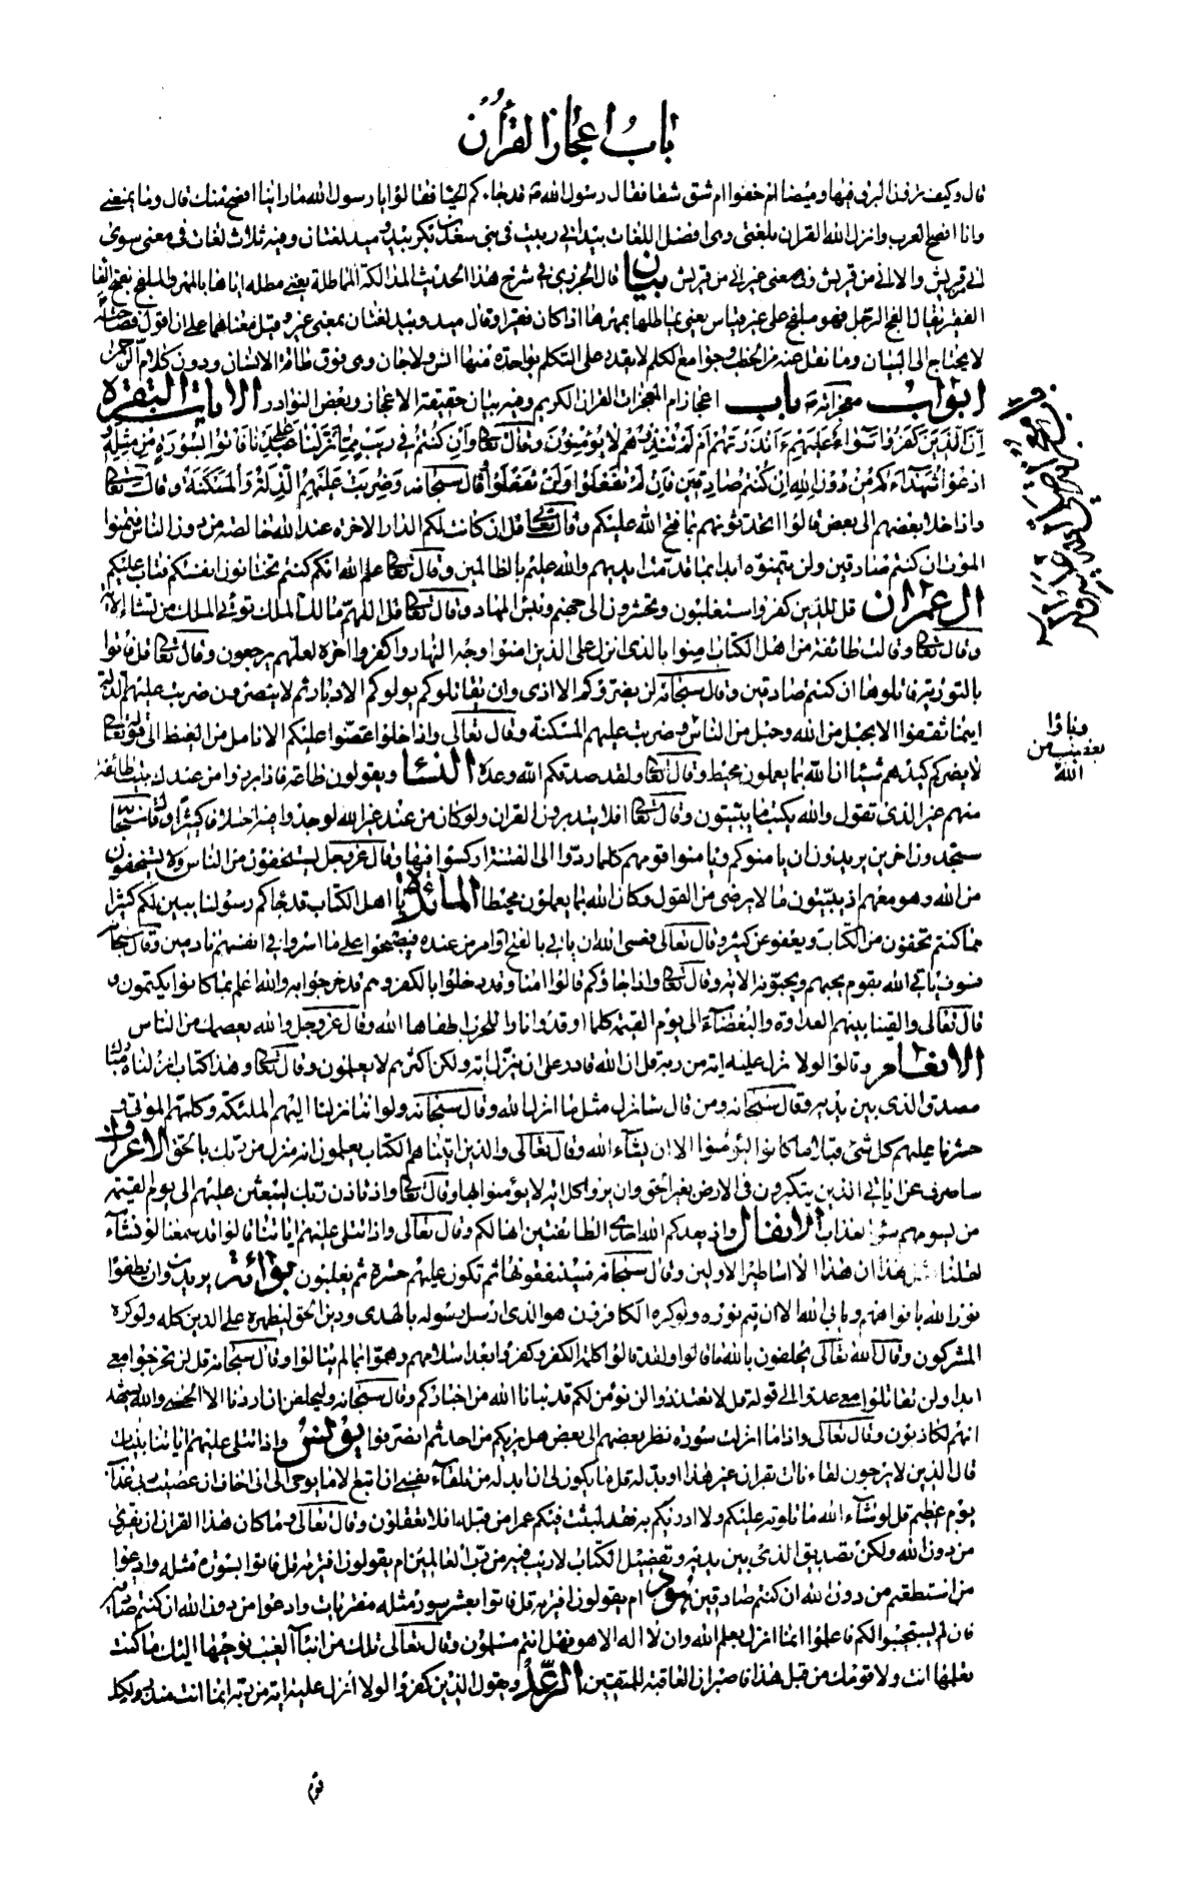 باب اعجاز القرآن
قال وكيف ترون البرق فيها وميضا ام خفوا ام شق شقا فقال رسول الله ص قد جاءكم الحيا فقالوا يا رسول الله ما راينا افصح منك قال وما يمنعني
وانا افصح العرب وانزل الله القران بلغتي وهي افضل اللغات بيد اني ربيت في بني سعد بن بكر بيد وميد لغتان وفيه ثلاث لغات في معنى سوى
اني من قريش والا اني من قريش وفي معنى غير اني من قريش بيان قال الجزري في شرح هذا الحديث المدالكة المماطلة يعني مطله اياها بالمهر والملفج بفتح الفاء
الفقير يقال الفج الرجل فهو ملفج على غير قياس يعني يماطلها بمهرها اذا كان فقيرا وقال ميد وبيد لغتان بمعنى غير وقيل معناهما على ان اقول فصاحته
لا يحتاج الى البيان وما نقل عنه من الخطب وجوامع الكلم لا يقدر على التكلم بواحدة منها انس ولا جان وهي فوق طاقة الانسان ودون كلام الرحمن
ابواب معجزاته ص باب اعجاز ام المعجزات القران الكريم وفيه بيان حقيقة الاعجاز وبعض النوادر الايات البقرة
اِنَّ الَّذينَ كَفَرُوا سَوٰاءٌ عَلَيْهِمْ ءَاَنْذَرْتَهُمْ اَمْ لَمْ تُنْذِرْهُمْ لا يُؤْمِنُونَ وقال تعالى وَاِنْ كُنْتُمْ فى رَيْبٍ مِمّا نَزَّلْنا عَلى عَبْدِنا فَاْتُوا بِسُورَةٍ مِنْ مِثْلِهِ وَ
ادْعُوا شُهَدٰاءَكُمْ مِنْ دُونِ اللهِ اِنْ كُنْتُمْ صٰادِقينَ فَاِنْ لَمْ تَفْعَلُوا وَلَنْ تَفْعَلُوا وقال سبحانه وَضُرِبَتْ عَلَيْهِمُ الذِّلَّةُ وَالْمَسْكَنَةُ وقال تعالى
واذا خلا بعضهم الى بعض قالوا اتحدثونهم بما فتح الله عليكم وقال تعالى قل ان كانت لكم الدار الاخرة عند الله خالصة من دون الناس فتمنوا
الموت ان كنتم صادقين ولن يتمنوه ابدا بما قدمت ايديهم والله عليم بالظالمين وقال تعالى علم الله انكم كنتم تختانون انفسكم فتاب عليكم
ال عمران قل للذين كفروا ستغلبون وتحشرون الى جهنم وبئس المهاد وقال تعالى قل اللهم مالك الملك تؤتي الملك من تشاء الاية
وقال تعالى وقالت طائفة من اهل الكتاب امنوا بالذي انزل على الذين امنوا وجه النهار واكفروا اخره لعلهم يرجعون وقال تعالى قل فاتوا
بالتورية فاتلوها ان كنتم صادقين وقال سبحانه لن يضروكم الا اذى وان يقاتلوكم يولوكم الادبار ثم لا ينصرون ضربت عليهم الذلة
اينما ثقفوا الا بحبل من الله وحبل من الناس وضربت عليهم المسكنة وقال تعالى واذا خلوا عضوا عليكم الانامل من الغيظ الى قوله تعالى
لا يضركم كيدهم شيئا ان الله بما يعملون محيط وقال تعالى ولقد صدقكم الله وعده النسا ويقولون طاعة فاذا برزوا من عندك بيت طائفة
منهم غير الذي تقول والله يكتب ما يبيتون وقال تعالى افلا يتدبرون القران ولو كان من عند غير الله لوجدوا فيه اختلافا كثيرا وقال سبحانه
ستجدون اخرين يريدون ان يامنوكم ويامنوا قومهم كلما ردوا الى الفتنة اركسوا فيها وقال عز وجل يستخفون من الناس ولا يستخفون
من الله وهو معهم اذ يبيتون ما لا يرضى من القول وكان الله بما يعملون محيطا المائدة يا اهل الكتاب قد جاءكم رسولنا يبين لكم كثيرا
مما كنتم تخفون من الكتاب ويعفو عن كثير وقال تعالى فعسى الله ان ياتي بالفتح او امر من عنده فيصبحوا على ما اسروا في انفسهم نادمين وقال سبحانه
فسوف ياتي الله بقوم يحبهم ويحبونه الاية وقال تعالى واذا جاؤكم قالوا امنا وقد دخلوا بالكفر وهم قد خرجوا به والله اعلم بما كانوا يكتمون و
قال تعالى والقينا بينهم العداوة والبغضاء الى يوم القيمة كلما اوقدوا نارا للحرب اطفاها الله وقال عز وجل والله يعصمك من الناس
الانعام وقالوا لولا نزل عليه اية من ربه قل ان الله قادر على ان ينزل اية ولكن اكثرهم لا يعلمون وقال تعالى وهذا كتاب انزلناه مبارك
مصدق الذي بين يديه وقال سبحانه ومن قال سانزل مثل ما انزل الله وقال سبحانه ولو اننا نزلنا اليهم الملئكة وكلمهم الموتى و
حشرنا عليهم كل شئ قبلا ما كانوا ليؤمنوا الا ان يشاء الله وقال تعالى والذين اتيناهم الكتاب يعلمون انه منزل من ربك بالحق الاعراف
ساصرف عن اياتي الذين يتكبرون في الارض بغير الحق وان يروا كل اية لا يؤمنوا بها وقال تعالى واذ تاذن ربك ليبعثن عليهم الى يوم القيمة
من يسومهم سوء العذاب الانفال واذ يعدكم الله احدى الطائفتين انها لكم وقال تعالى واذا تتلى عليهم اياتنا قالوا قد سمعنا لو نشاء
لقلنا مثل هذا ان هذا الا اساطير الاولين وقال سبحانه فسينفقونها ثم تكون عليهم حسرة ثم يغلبون برائة يريدون ان يطفوا
نور الله بافواههم ويابى الله الا ان يتم نوره ولو كره الكافرون هو الذي ارسل رسوله بالهدى ودين الحق ليظهره على الدين كله ولو كره
المشركون وقال الله تعالى يحلفون بالله ما قالوا ولقد قالوا كلمة الكفر وكفروا بعد اسلامهم وهموا بما لم ينالوا وقال سبحانه قل لن تخرجوا معي
ابدا ولن تقاتلوا معي عدوا الى قوله قل لا تعتذروا لن نؤمن لكم قد نبانا الله من اخباركم وقال سبحانه وليحلفن ان اردنا الا الحسنى والله يشهد
انهم لكاذبون وقال تعالى واذا ما انزلت سورة نظر بعضهم الى بعض هل يريكم من احد ثم انصرفوا يونس واذا تتلى عليهم اياتنا بينات
قال الذين لا يرجون لقاءنا ائت بقران غير هذا او بدله قل ما يكون لي ان ابدله من تلقاء نفسي ان اتبع الا ما يوحى الي اني اخاف ان عصيت ربي عذاب
يوم عظيم قل لو شاء الله ما تلوته عليكم ولا ادريكم به فقد لبثت فيكم عمرا من قبله افلا تعقلون وقال تعالى وما كان هذا القران ان يفترى
من دون الله ولكن تصديق الذي بين يديه وتفصيل الكتاب لا ريب فيه من رب العالمين ام يقولون افتريه قل فاتوا بسورة مثله وادعوا
من استطعتم من دون الله ان كنتم صادقين هود ام يقولون افتريه قل فاتوا بعشر سور مثله مفتريات وادعوا من دون الله ان كنتم صادقين
فان لم يستجيبوا لكم فاعلموا انما انزل بعلم الله وان لا اله الا هو فهل انتم مسلمون وقال تعالى تلك من انباء الغيب نوحيها اليك ما كنت
تعلمها انت ولا قومك من قبل هذا فاصبر ان العاقبة للمتقين الرعد ويقول الذين كفروا لولا انزل عليه اية من ربه انما انت منذر ولكل
قوم
وباؤا
بغضب من
الله